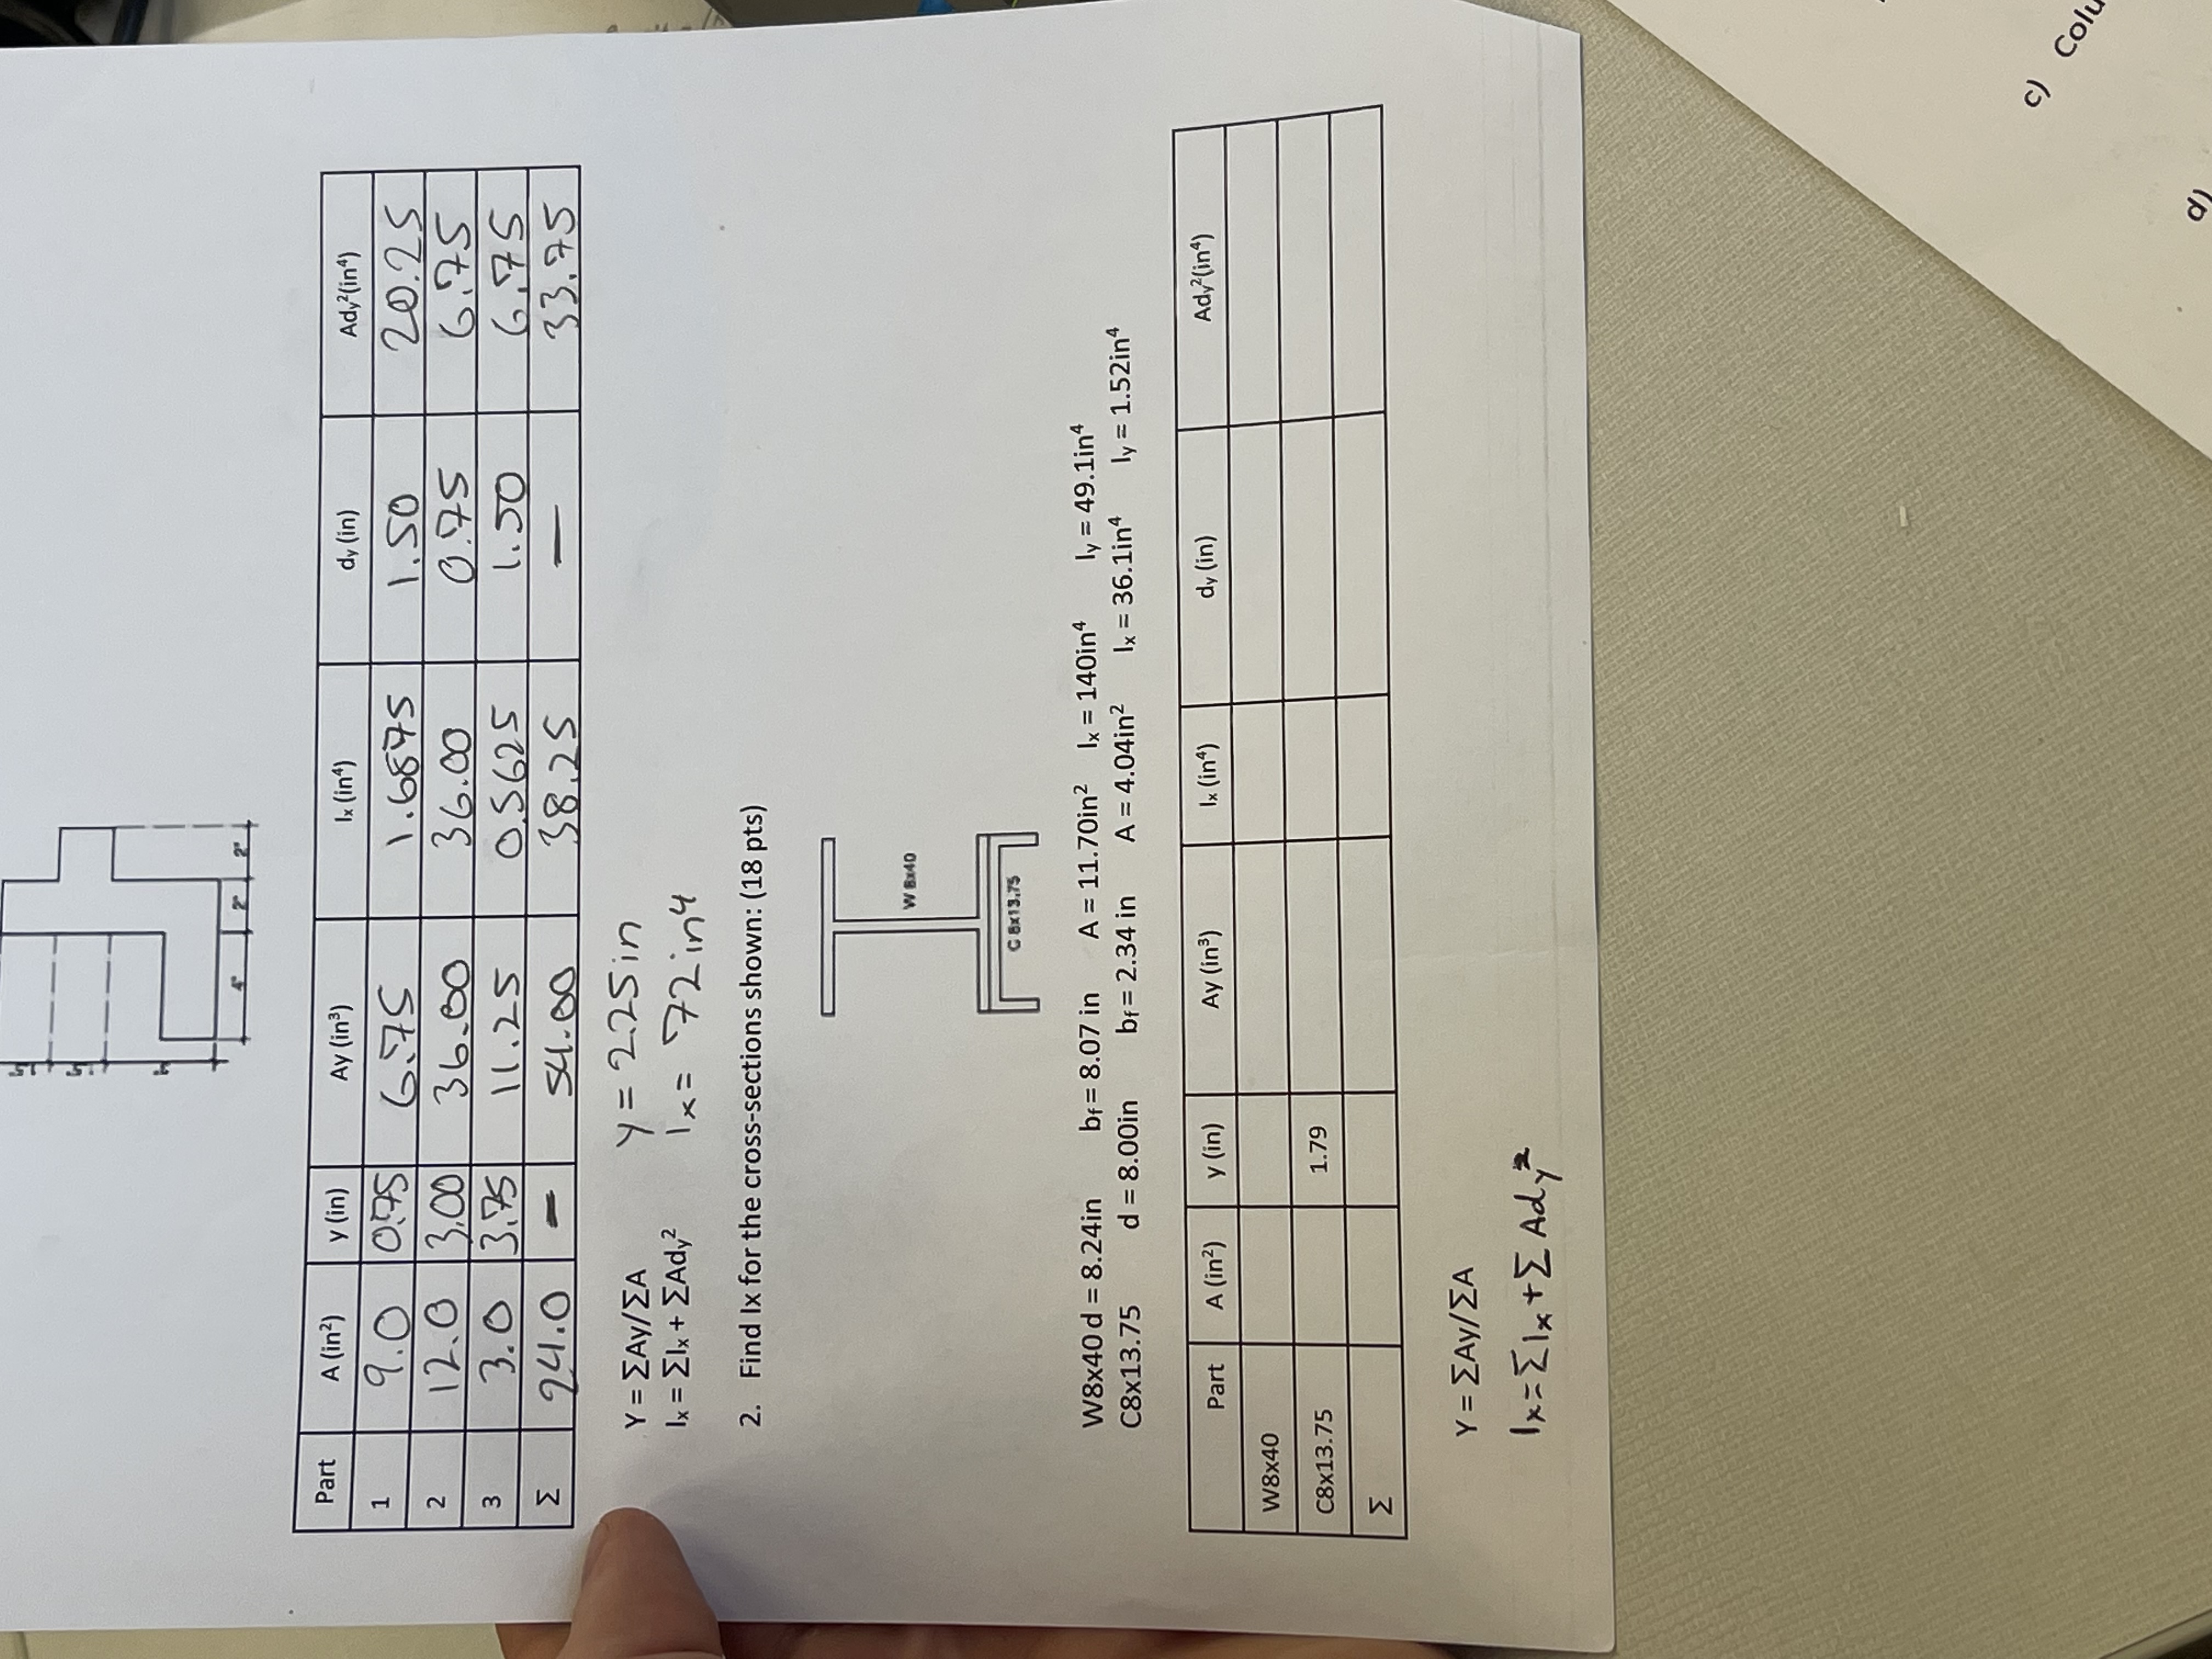 4" 2" 2"
Part A (in²) y (in) Ay (in³) Iₓ (in⁴) dᵧ (in) Adᵧ² (in⁴)
1 9.0 0.75 6.75 1.6875 1.50 20.25
2 12.0 3.00 36.00 36.00 0.75 6.75
3 3.0 3.75 11.25 0.5625 1.50 6.75
Σ 24.0 - 54.00 38.25 - 33.75
Y = ΣAy/ΣA y = 2.25in
Iₓ = ΣIₓ + ΣAdᵧ² Iₓ = 72in⁴
2. Find Ix for the cross-sections shown: (18 pts)
W 8x40
C 8x13.75
W8x40 d = 8.24in bf = 8.07 in A = 11.70in² Iₓ = 140in⁴ Iᵧ = 49.1in⁴
C8x13.75 d = 8.00in bf = 2.34 in A = 4.04in² Iₓ = 36.1in⁴ Iᵧ = 1.52in⁴
Part A (in²) y (in) Ay (in³) Iₓ (in⁴) dᵧ (in) Adᵧ²(in⁴)
W8x40
C8x13.75 1.79
Σ
Y = ΣAy/ΣA
Iₓ = ΣIₓ + ΣAdᵧ²
c) Colu
d)